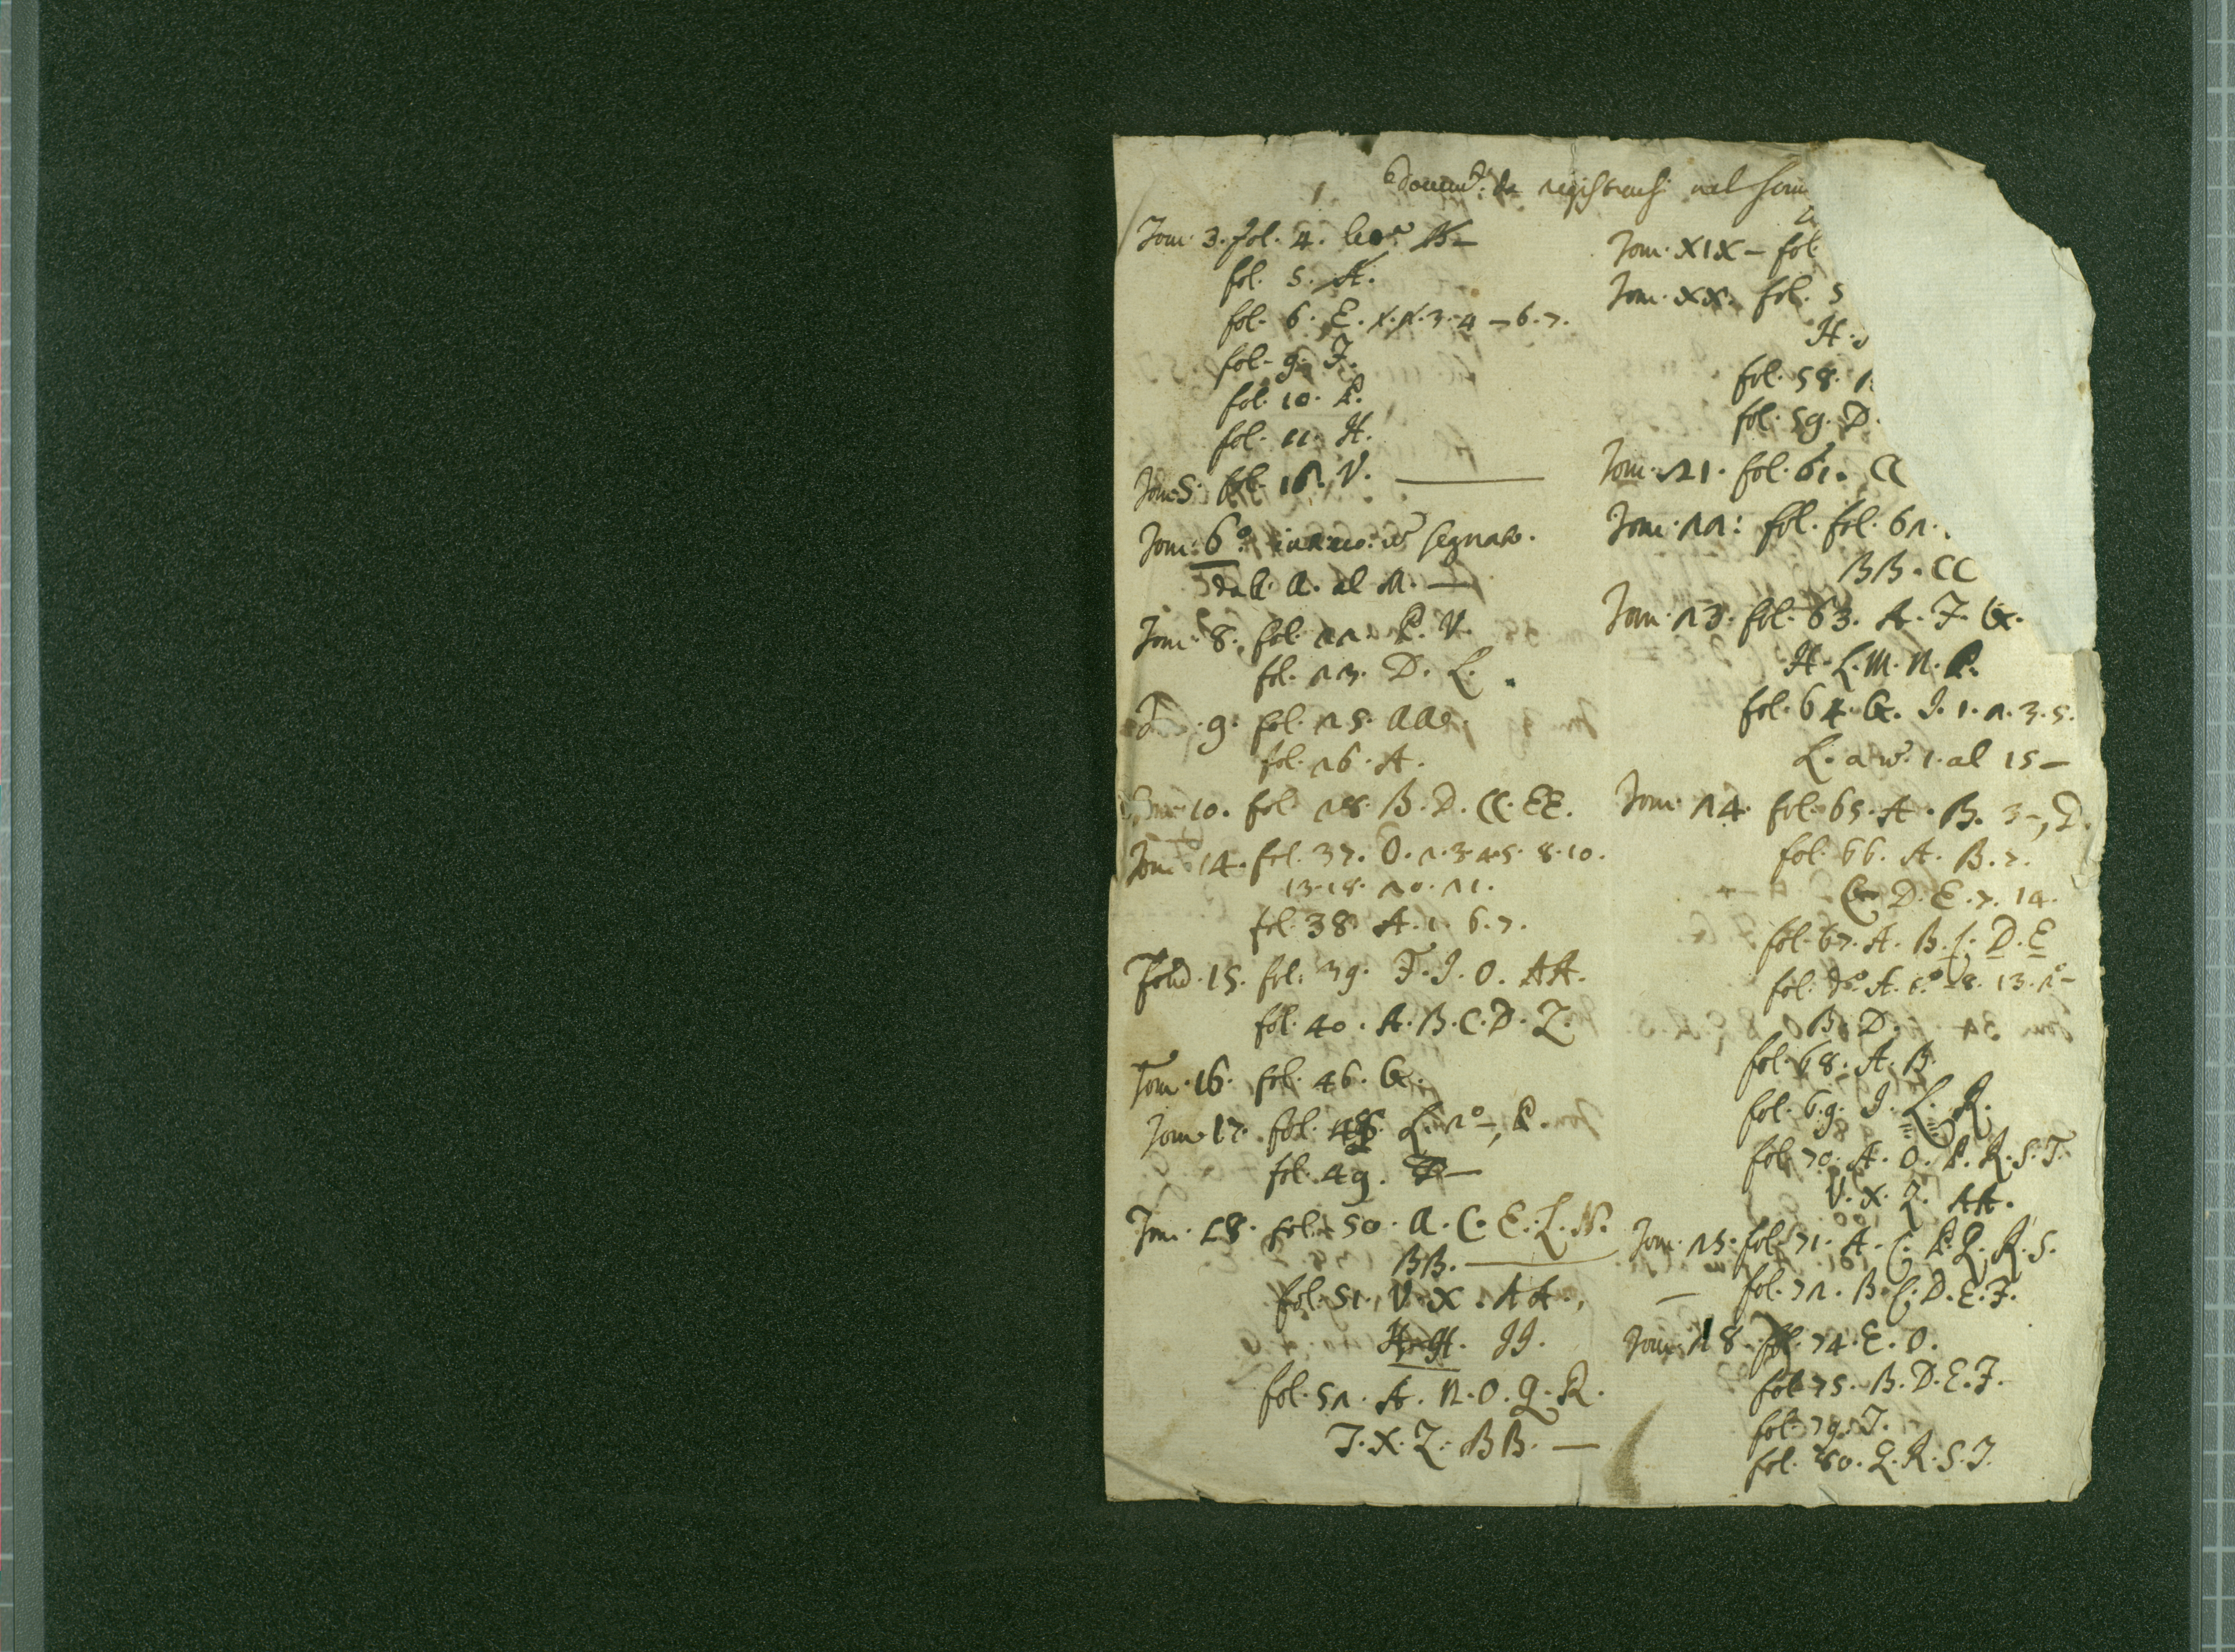 da registrarsi nel
Tom. 3. fol. 4. B -
fol. 5. A.
fol. 6. E. 3. 4 - 6. 7.
fol. 9. F.
fol. 10. P.
fol. 11. H.
Tom. 5. fol. V.
Tom. 6.º segnato.
dal. A. al
Tom. 8. fol. 22. P. V.
fol. 23. D. L.
9. fol. 25.
fol. 26. A.
10. fol. 28. B. D. CC. EE.
Tom. 14. fol. 37. O. 2. 3. 4. 5. 8. 10.
13. 18. 20. 21.
fol. 38. A. 1. 6. 7.
15. fol. 39. F. I. O. AA.
fol. 40. A. B. C. D. Z.
Tom. 16. fol. 46. G.
Tom. 17. fol. L. 2º -, P.
fol. 49.
Tom. 18. fol. 50. A. C. E. L. N.
BB.
fol. 51. V. X. AA.,
HH. II.
fol. 52. A. N. O. Q. R.
T. X. Z. BB. -
Tom. XIX - fol.
Tom. XX. fol. 5
H.
fol. 58.
fol. 59. D.
Tom. 21. fol. 61.
Tom. 22: fol. fol. 62.
BB. CC
Tom. 23. fol. 63. A. F. G.
H. L. M. N. P.
fol. 64. G. I. 1. 2. 3. 5.
L. 1. al 15 -
Tom. 24. fol. 65. A. B. 3 -, D.
fol. 66. A. B. 7.
C D. E. 7. 14.
fol. 67. A. B. C. D. E
fol. dº. A. 8. 13.
B. D.
fol. 68. A. B.
fol. 69. I. L. R.
fol. 70. A. O. P. R. S. T.
V. X. Z. AA.
Tom. 25. fol. 71. A. C. P. Q. R. S.
fol. 72. B. C. D. E. F.
Tom. 28. fol. 74. E. O.
fol. 75. B. D. E. F.
fol. 79. T.
fol. 80. Q. R. S. T.